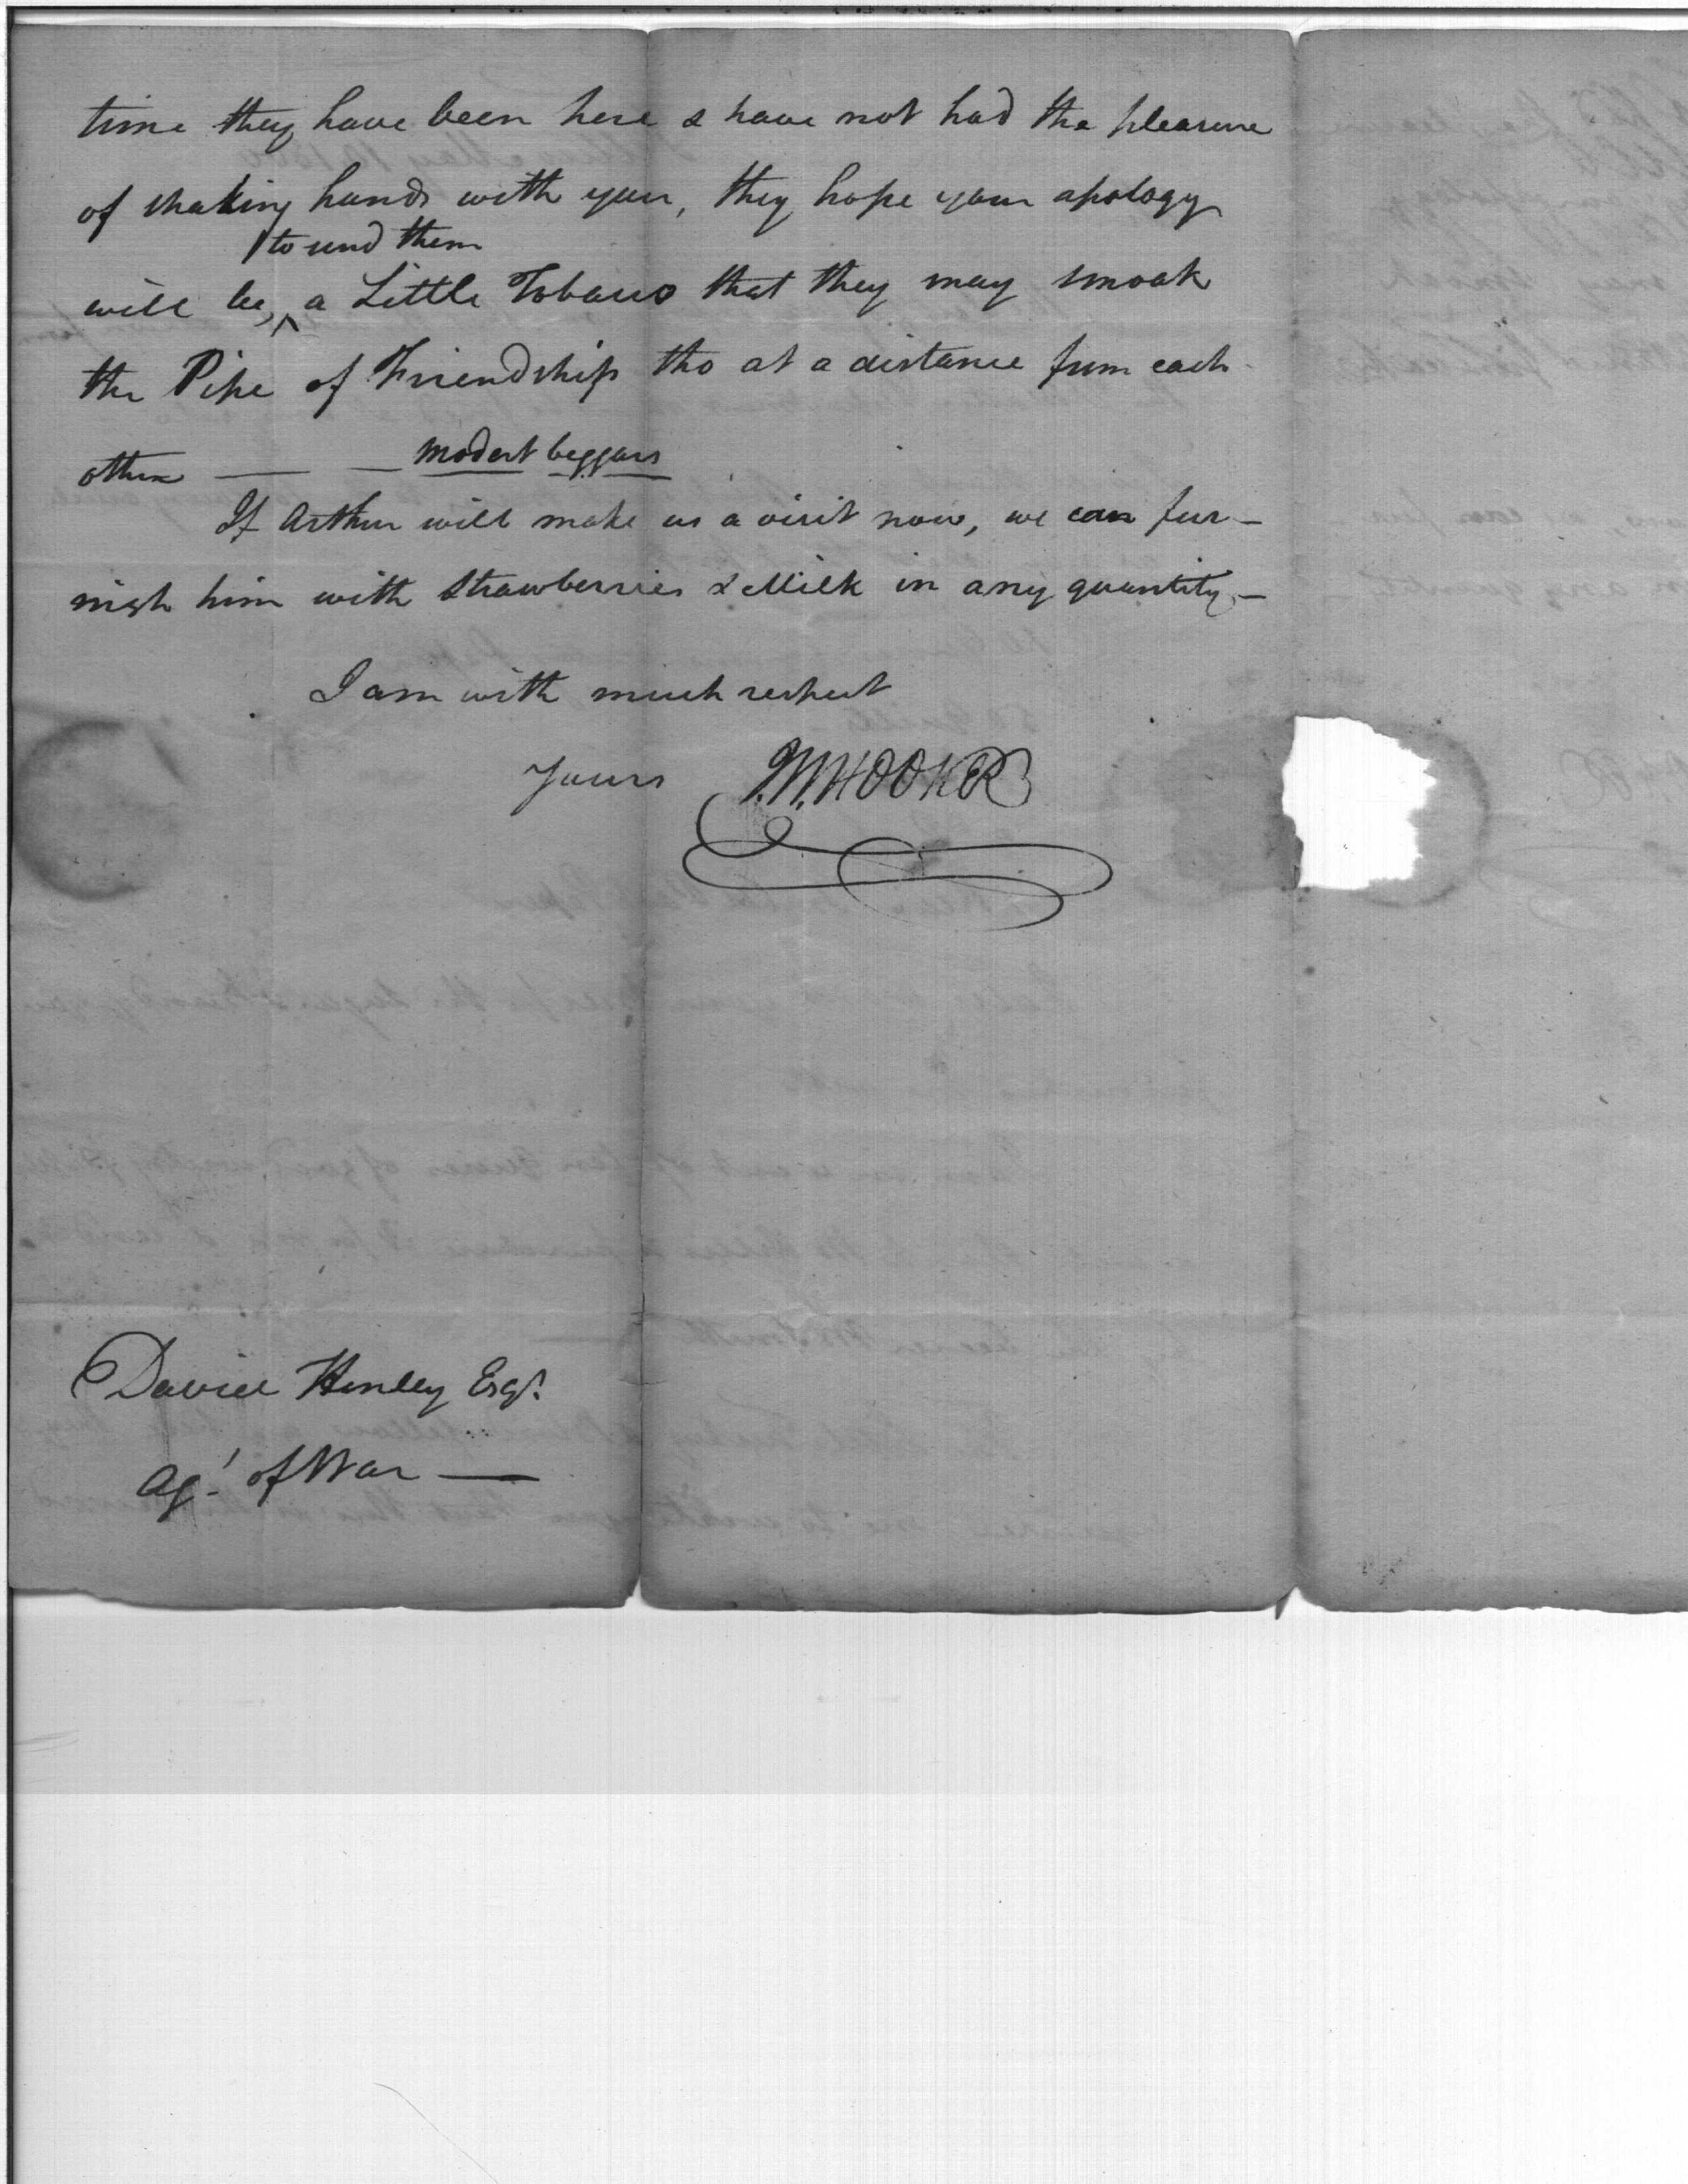 time they have been here & have not had the pleasure
of shaking hands with you, they hope your apology
to send them
will be, ^ a Little Tobacco that they may smoak
the Pipe of Friendship tho at a distance from each
other — — modest beggars
If Arthur will make us a visit now, we can fur-
nish him with Strawberries & Milk in any quantity —
I am with much respect
Yours J.W. HOOKER
David Henley Esqr.
Agt. of War —